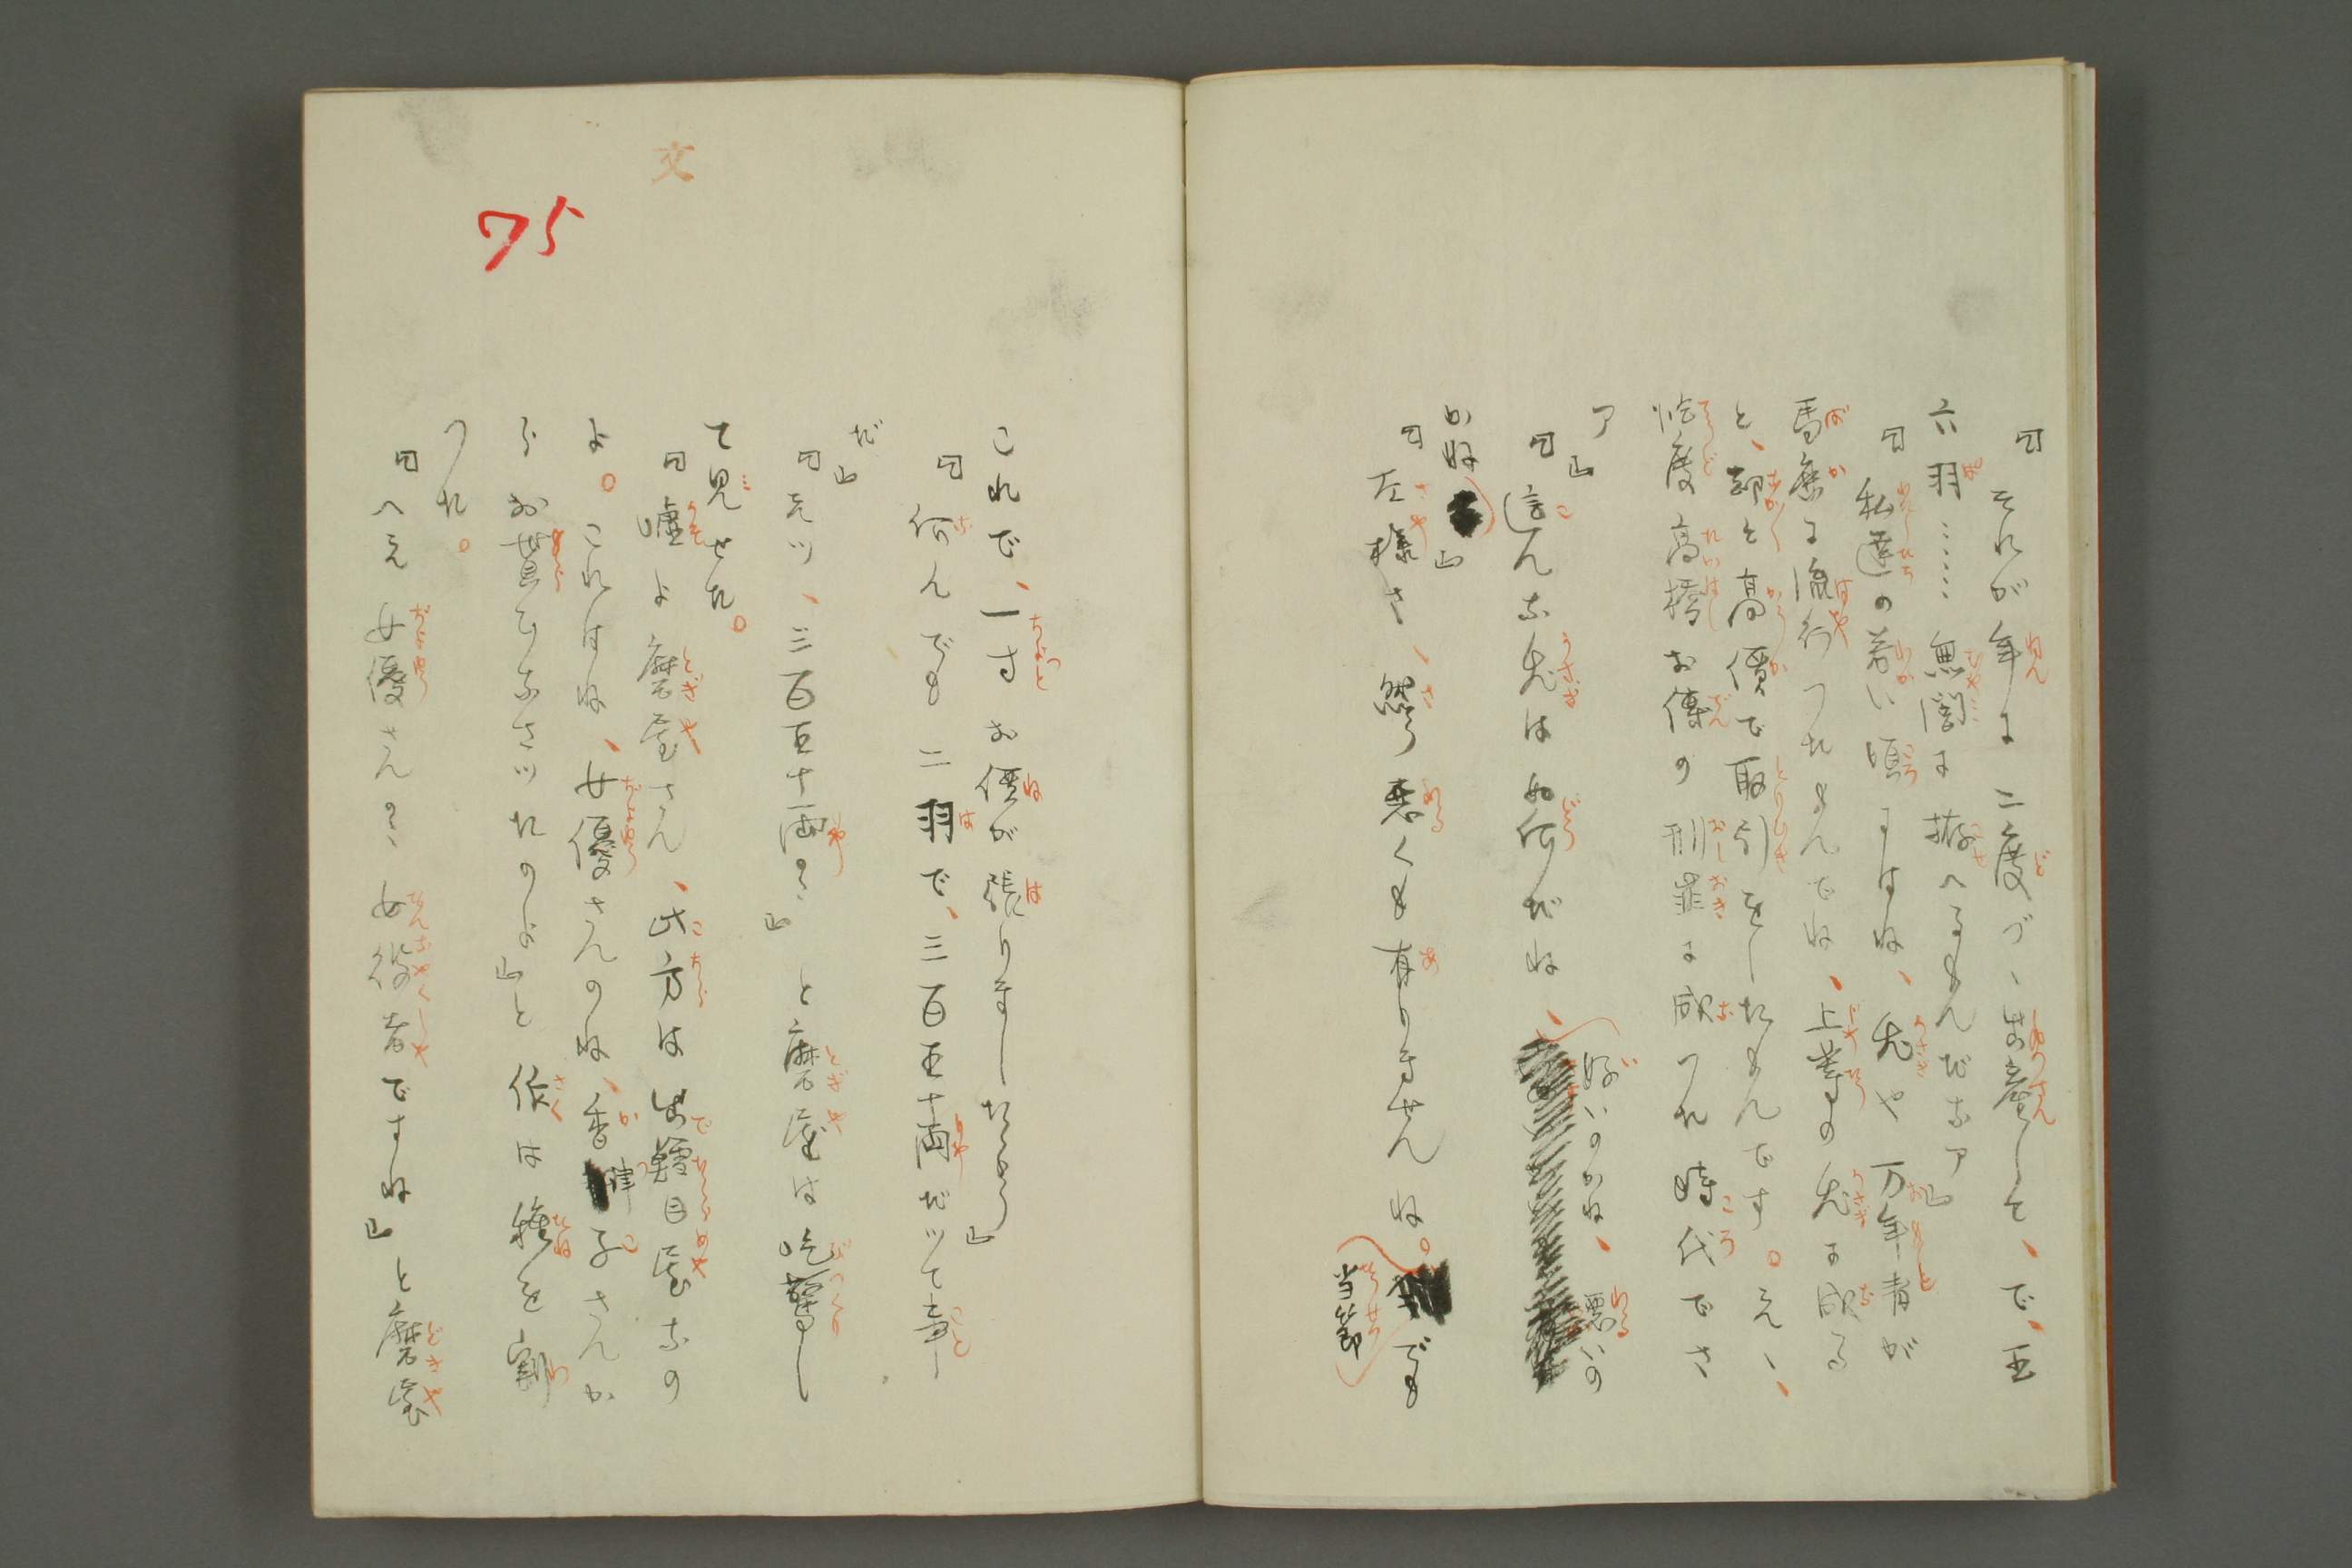 「それが年に二度づゝ出産して、で、五
六羽……無闇に拵へるもんだなア」
「私達の若い頃にはね、兎や万年青が
馬鹿に流行つたもんでね、上等の兎に成る
と、却々高價で取引をしたもんです。え、、
恰度高橋お傳の刑罪に成つた時代でさ
ア」
「這んな兎は如何だね、好いのかね、悪いの
かね」
「左様さ、然う悪くも有りませんね。当節でも
これで、一寸お價が張りましたらう」
「何んでも二羽で、三百五十兩だツて事
だ」
「えツ、三百五十兩?」と磨屋は吃驚し
て見せた。
「嘘よ磨屋さん、此方は出鱈目屋なの
よ。これはね、女優さんのね、香津子さんか
らお貰ひなさツたのよ」と作は種を割
つた。
「へえ女優さん? 女役者ですね」と磨屋
文
75